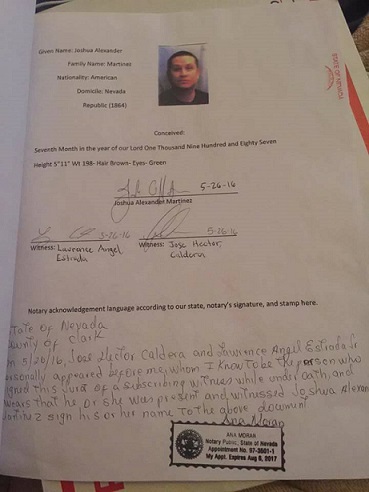 Given Name: Joshua Alexander
Family Name: Martinez
Nationality: American
Domicile: Nevada
Republic (1864)
STATE OF NEVADA
Conceived:
Seventh Month in the year of our Lord One Thousand Nine Hundred and Eighty Seven
Height 5"11" Wt 198- Hair Brown- Eyes- Green
5-26-16
Joshua Alexander Martinez
5-26-16 5.26.16
Witness: Lawrence Angel Witness: Jose Hector,
Estrada Calderon
Notary acknowledgement language according to our state, notary's signature, and stamp here.
State of Nevada
County of Clark
on 5/26/16, Jose Hector Caldera and Lawrence Angel Estrada Jr
personally appeared before me, whom I know to be the person who
signed this of a subscribing witness while under oath, and
swears that he or she was present and witnessed Joshua Alexan
sign his or her name to the above document
Ana Moran
ANA MORAN
Notary Public, State of Nevada
Appointment No. 97-3601-1
My Appt. Expires Aug 6, 2017